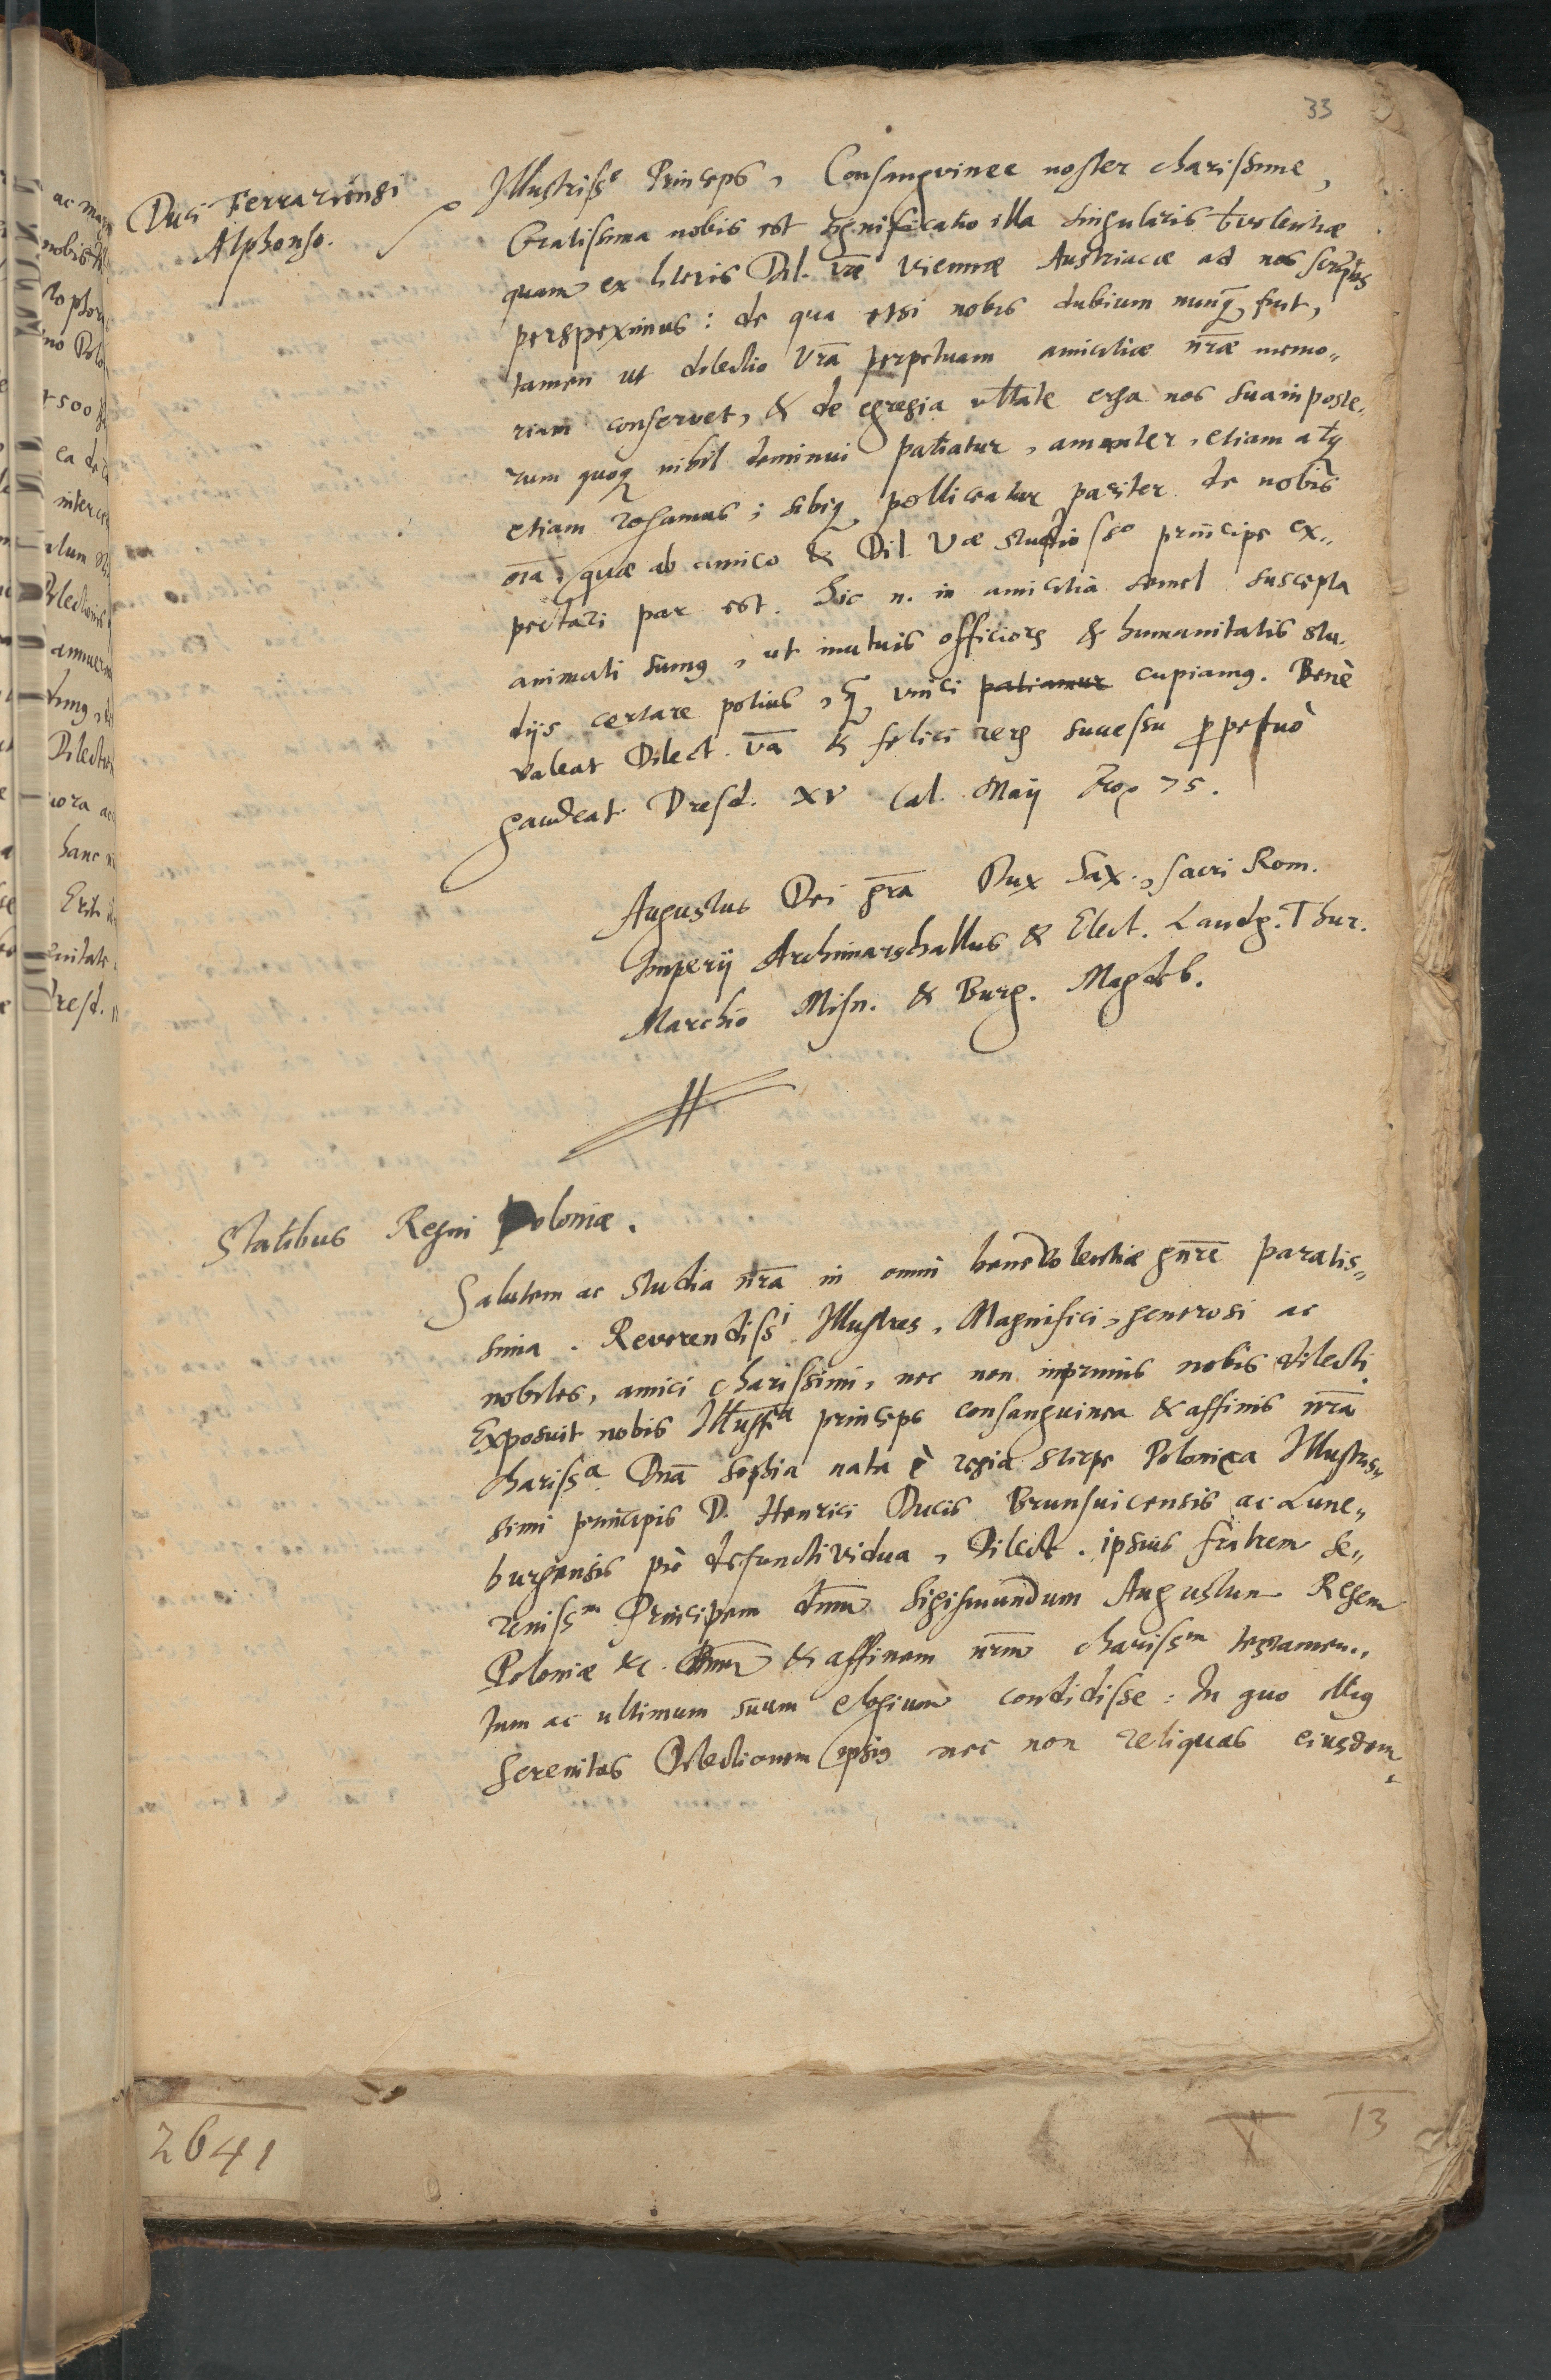 33
Duci Ferrariensi
Alphonso.
Illustriss^e Princeps, Consanguinee noster charissime,
Gratissima nobis est significatio illa singularis b̄volentiæ
quam ex literis Dil. Vræ Viennæ Austriacæ ad nos scriptis
perspeximus: de qua etsi nobis dubium nunq̃ fuit,
tamen ut dilectio Vr̄a perpetuam amicitiæ nr̄æ memo„
riam conservet, & de egregia volt̄ate erga nos sua in poste„
rum quoq; nihil deminui patiatur, amanter, etiam atq;
etiam rogamus; sibiq; polliceatur pariter de nobis
oīa, quæ ab amico & Dil. Væ studiosss^o principe ex„
pectari par est. Sic n. in amicitiā semel suscepta
animati sumus, ut mutuis officiorꝫ & humanitatis stu„
dijs certare potius, q̃ vinci patiamur cupiamus. Benè
valeat Dilect. V̄a & felici rerꝫ successu ꝑpetuò
gaudeat. Dresd. XV Cal. Maij 75.
Augustus Dei gr̄a Dux Sax., sacri Rom.
Imperij Archimarschallus & Elect. Landg. Thur.
Marchio Misn. & Burg. Magdeb.
Statibus Regni Poloniæ.
Salutem ac studia nr̄a in omni benevolentiæ gn̄re paratis„
sima. Reverendiss^i Illustres, Magnifici, generosi ac
nobiles, amici charissimi, nec non inprimis nobis dilecti.
Exposuit nobis Illustr^a princeps consanguinea & affinis nr̄a
chariss^a Dn̄a Sophia nata è regia stirpe Polonica Illustris„
simi principis D. Henrici Ducis Brunsuicensis ac Lune„
burgensis piè defuncti vidua, Dilect. ipsius fratrem Se„
reniss^m Principem dn̄m Sigismundum Augustum Regem
Poloniæ &c. & affinem nr̄m chariss^m testamen„
tum ac ultimum suum elogium condidisse: In quo illius
Serenitas Dilectionem ipsius nec non reliquas eiusdem
2641
13